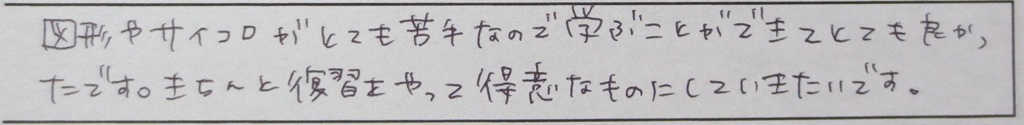 図形やサイコロがとても苦手なので学ぶことができてとても良かっ
たです。きちんと復習をやって得意なものにしていきたいです。